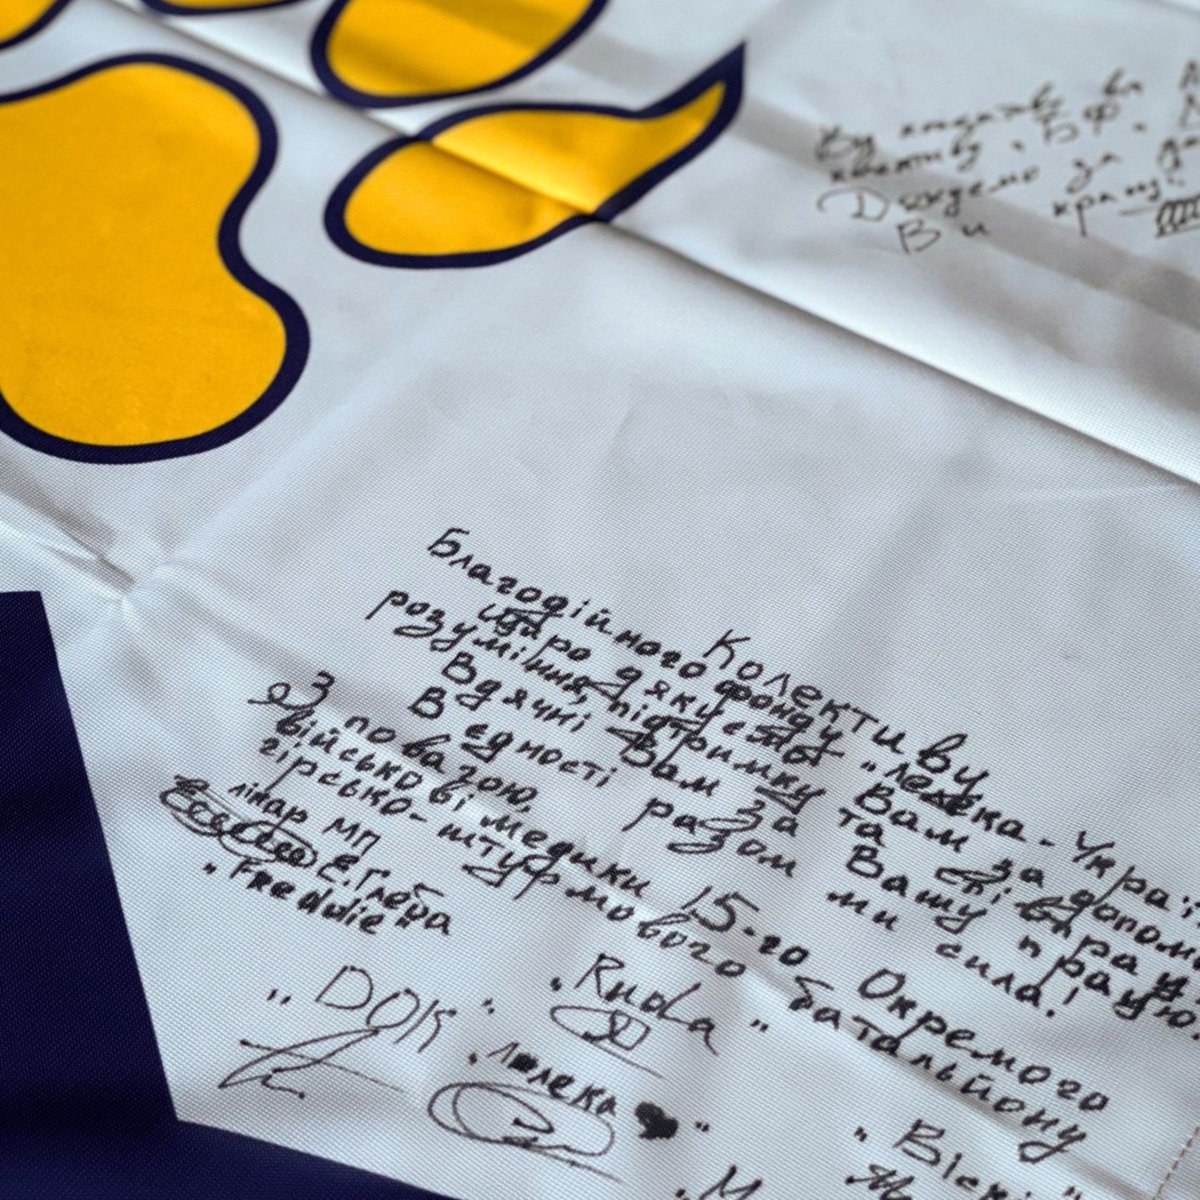 за
Дякуємо
Ви
Колективу
Благодійного фонду "Лелека-Украї
щиро дякуємо Вам за допомо
розуміння, підтримку та співпрацю
Вдячні Вам за Вашу працю.
В єдності разом ми сила!
З повагою,
військові медики 15-го Окремого
гірсько-штурмового батальйону
лікар МП
Є.Глєба
"Freddie"
"DOK"
"Ruda"
"Люлека"